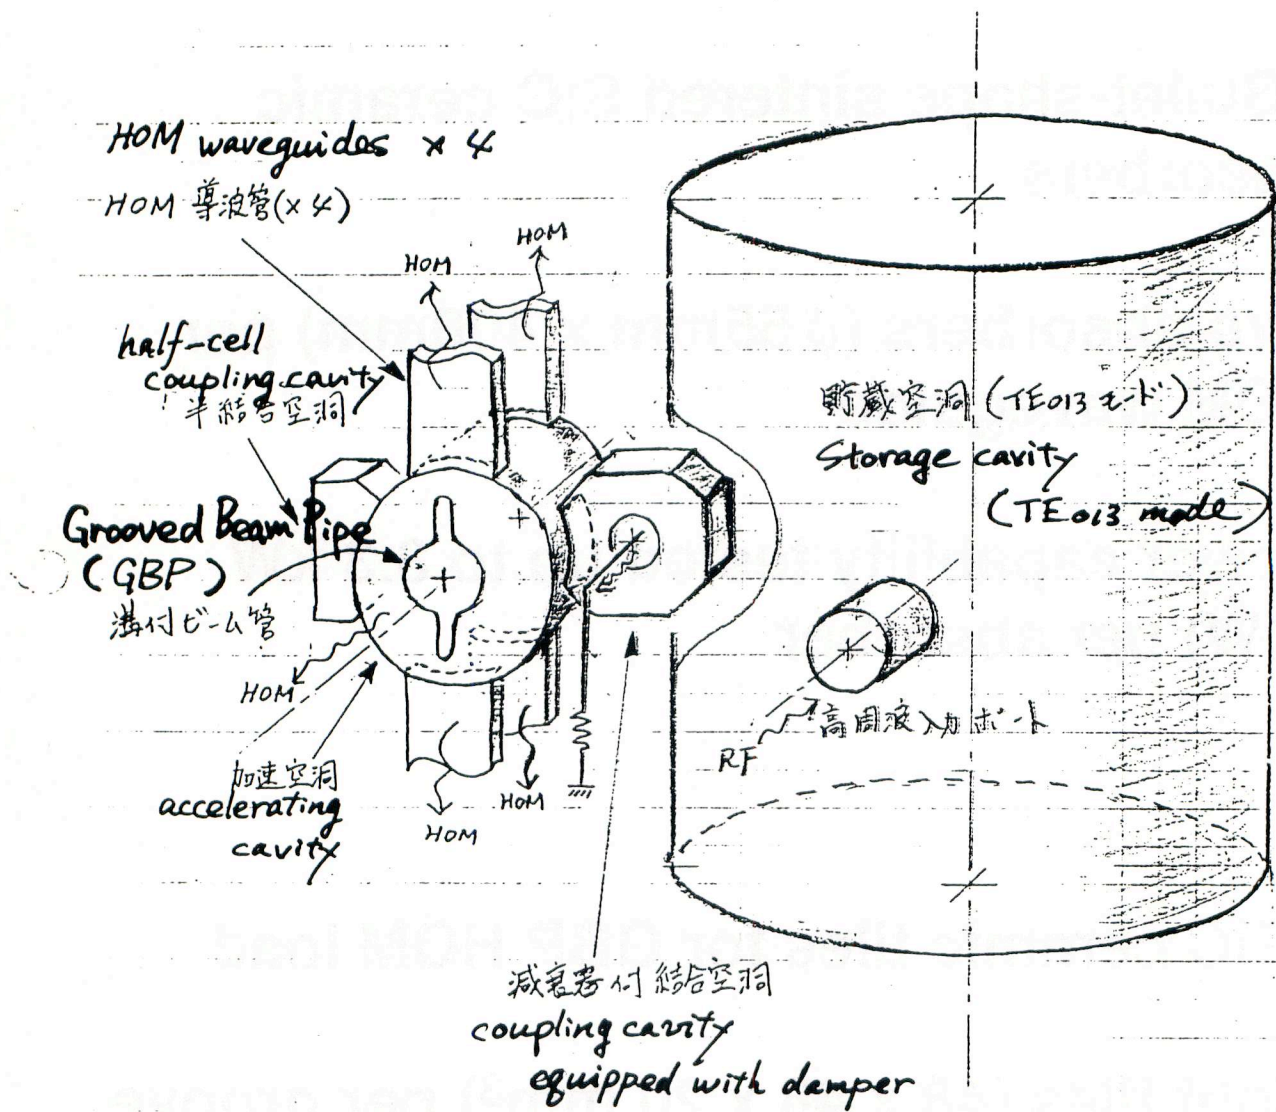 HOM waveguides × 4
HOM 導波管(×4)
HOM
HOM
half-cell
coupling cavity
半結合空洞
Grooved Beam Pipe
(GBP)
溝付ビーム管
HOM
加速空洞
accelerating
cavity
HOM
HOM
貯蔵空洞 (TE013 モード)
Storage cavity
(TE013 mode)
RF
高周波入力ポート
減衰器付結合空洞
coupling cavity
equipped with damper